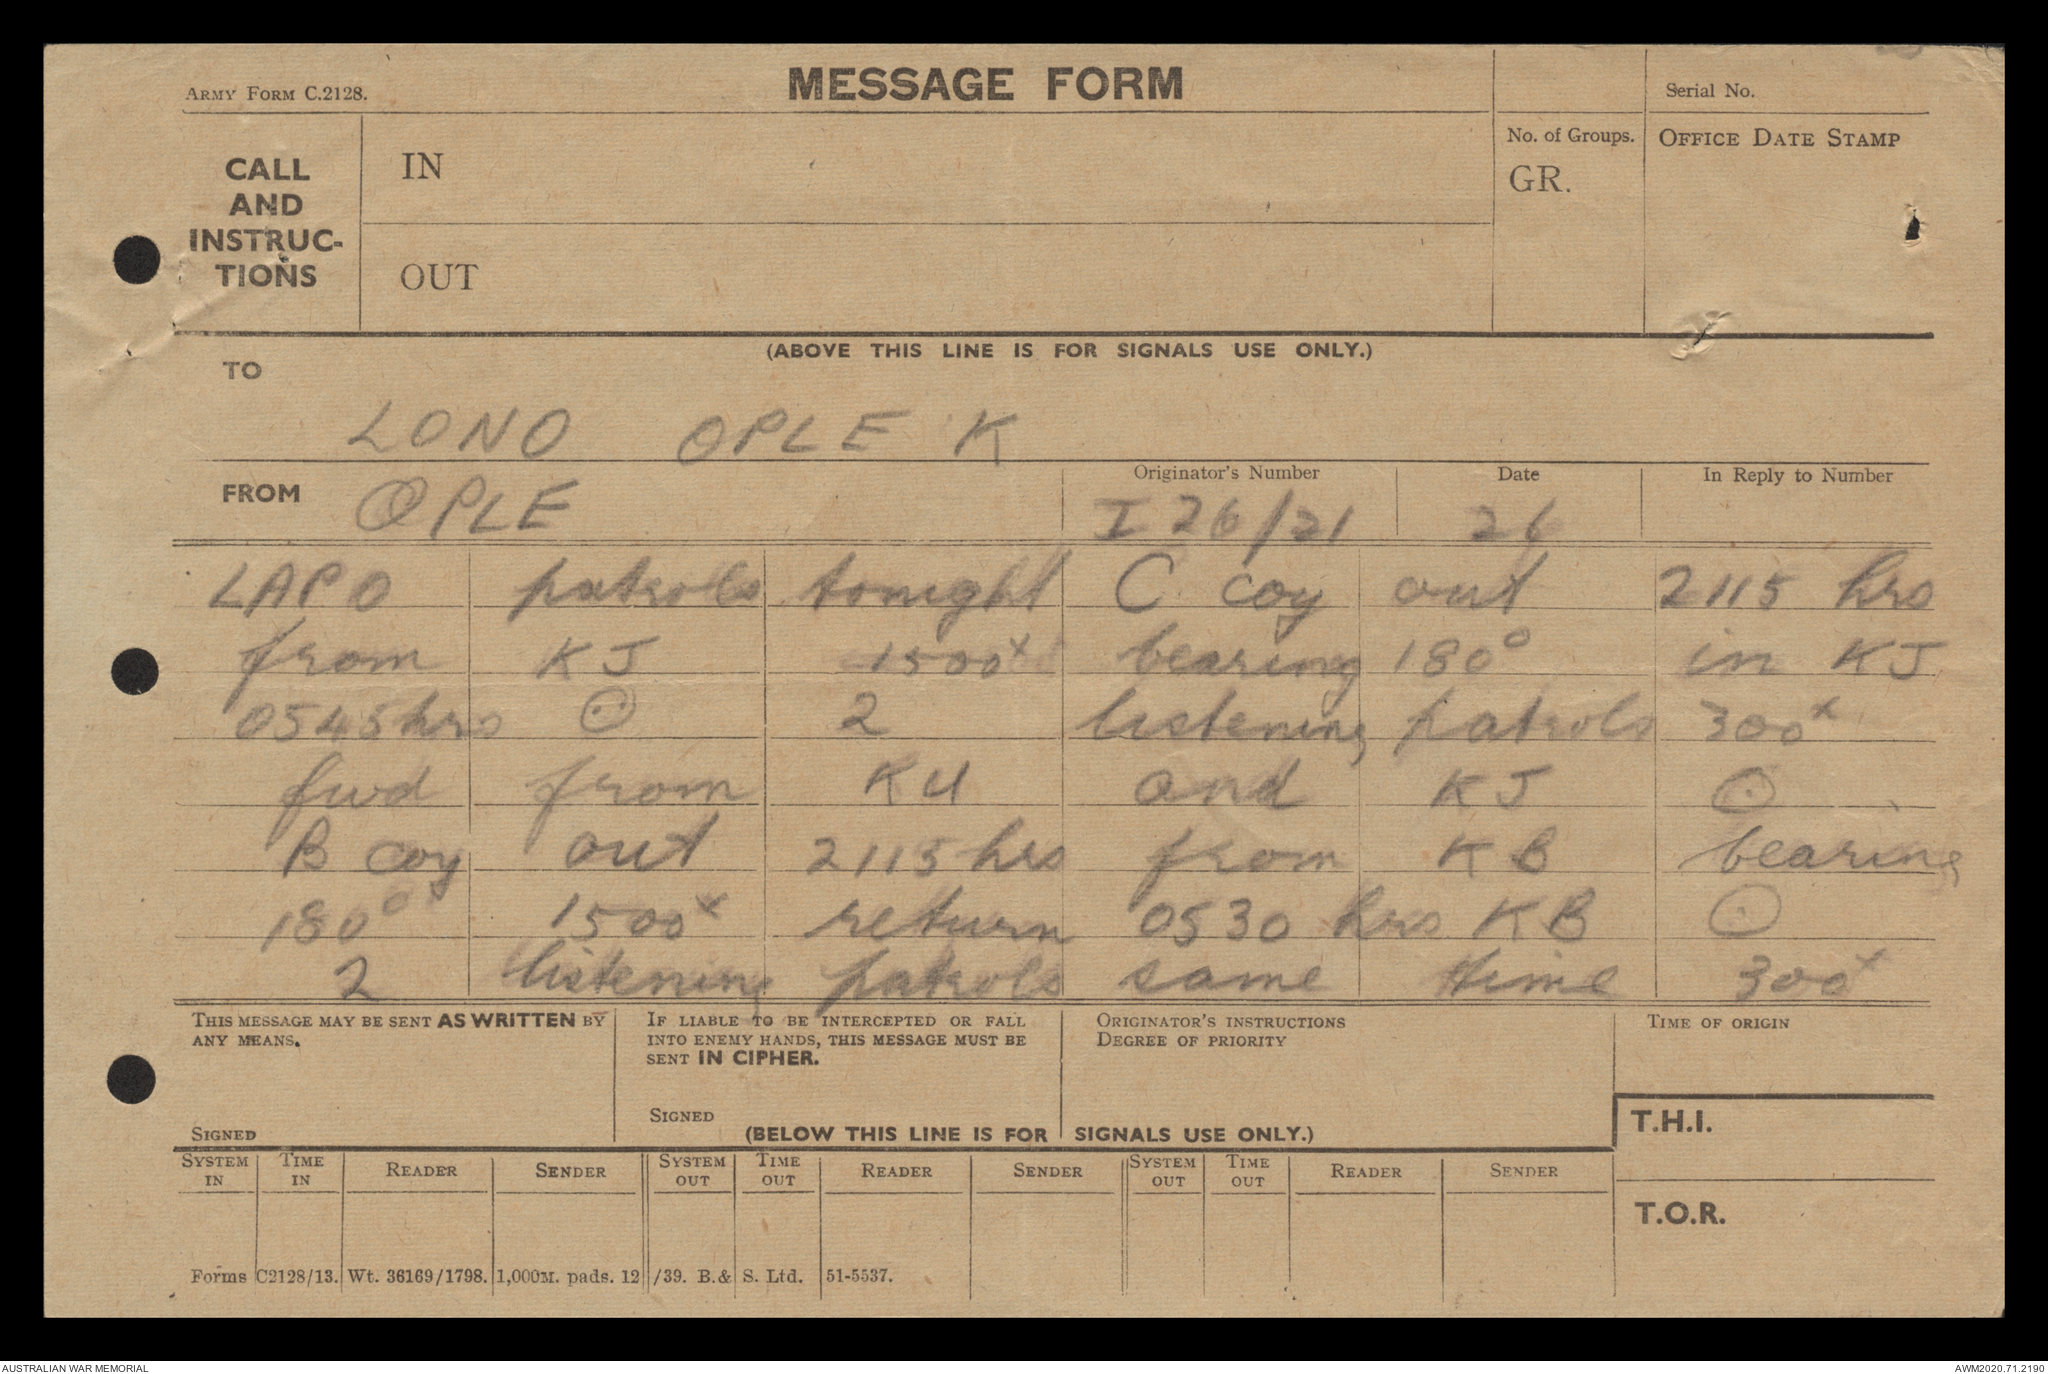 ARMY FORM C.2128.
MESSAGE FORM
Serial No.
CALL
AND
INSTRUC-
TIONS
IN
OUT
No. of Groups.
GR.
OFFICE DATE STAMP
(ABOVE THIS LINE IS FOR SIGNALS USE ONLY.)
TO
LONO OPLE K
FROM OPLE
Originator's Number
I 26/21
Date
26
In Reply to Number
LAPO patrols tonight C coy out 2115 hrs
from KJ 1500x bearing 180° in KJ
0545 hrs ⊙ 2 listening patrols 300x
fwd from KU and KJ ⊙
B coy out 2115 hrs from KB bearing
180° 1500x return 0530 hrs KB ⊙
2 listening patrols same time 300x
THIS MESSAGE MAY BE SENT AS WRITTEN BY
ANY MEANS.
SIGNED
IF LIABLE TO BE INTERCEPTED OR FALL
INTO ENEMY HANDS, THIS MESSAGE MUST BE
SENT IN CIPHER.
SIGNED
ORIGINATOR'S INSTRUCTIONS
DEGREE OF PRIORITY
TIME OF ORIGIN
(BELOW THIS LINE IS FOR SIGNALS USE ONLY.)
T.H.I.
T.O.R.
SYSTEM IN
TIME IN
READER
SENDER
SYSTEM OUT
TIME OUT
READER
SENDER
SYSTEM OUT
TIME OUT
READER
SENDER
Forms C2128/13. Wt. 36169/1798. 1,000M. pads. 12/39. B.& S. Ltd. 51-5537.
AUSTRALIAN WAR MEMORIAL
AWM2020.71.2190